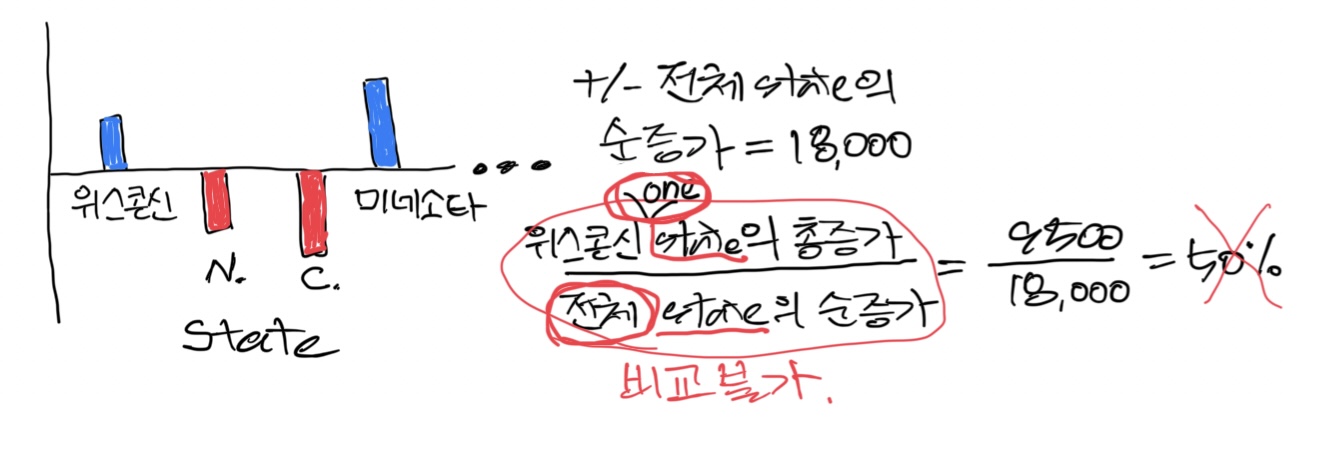 위스콘신
N.
C.
미네소타
State
+/- 전체 state의
순증가 = 18,000
one
위스콘신 state의 총증가
전체 state의 순증가
= 9500
18,000
= 50%
비교 불가.